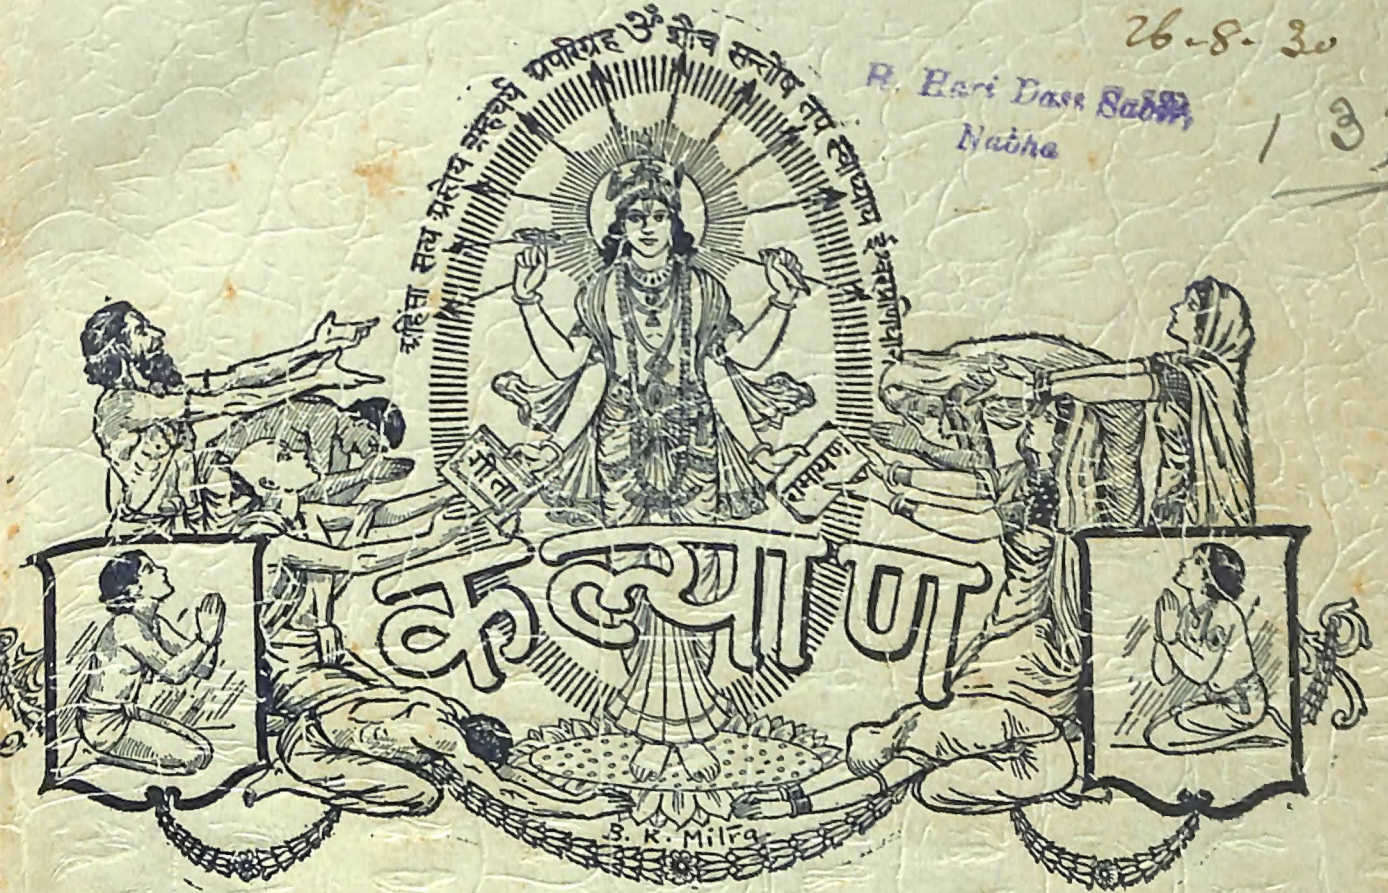 26-8-30
R. Hari Dass
Nabha
13
अहिंसा सत्य अस्तेय ब्रह्मचर्य अपरिग्रह ॐ शौच सन्तोष तप स्वाध्याय
गीता
रामायण
कल्याण
B. K. Mitra